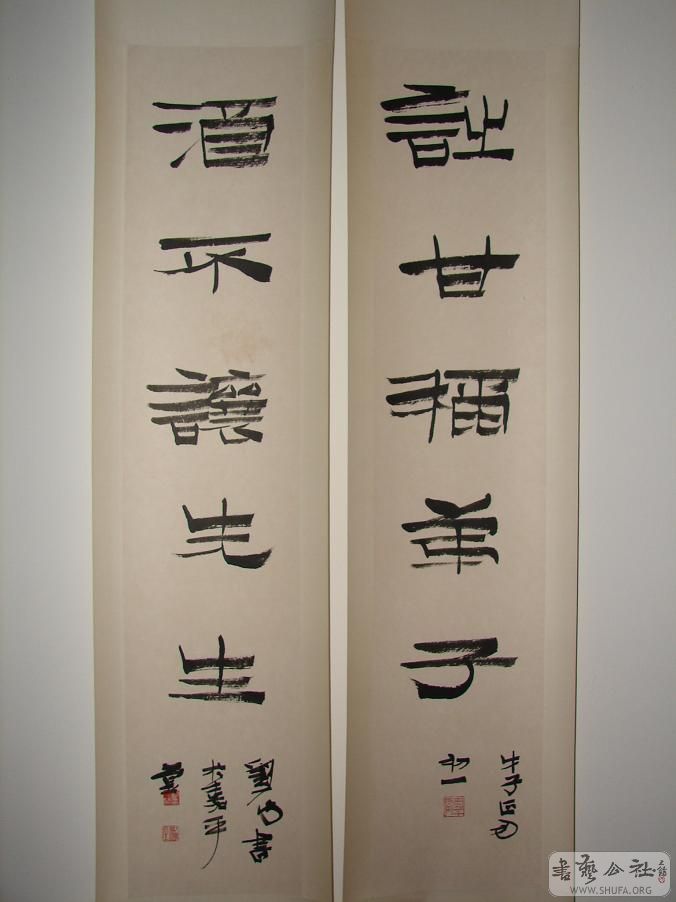 詩甘稱弟子
戊子正月
初一
酒不讓先生
書
於嘉平
書藝公社
WWW.SHUFA.ORG